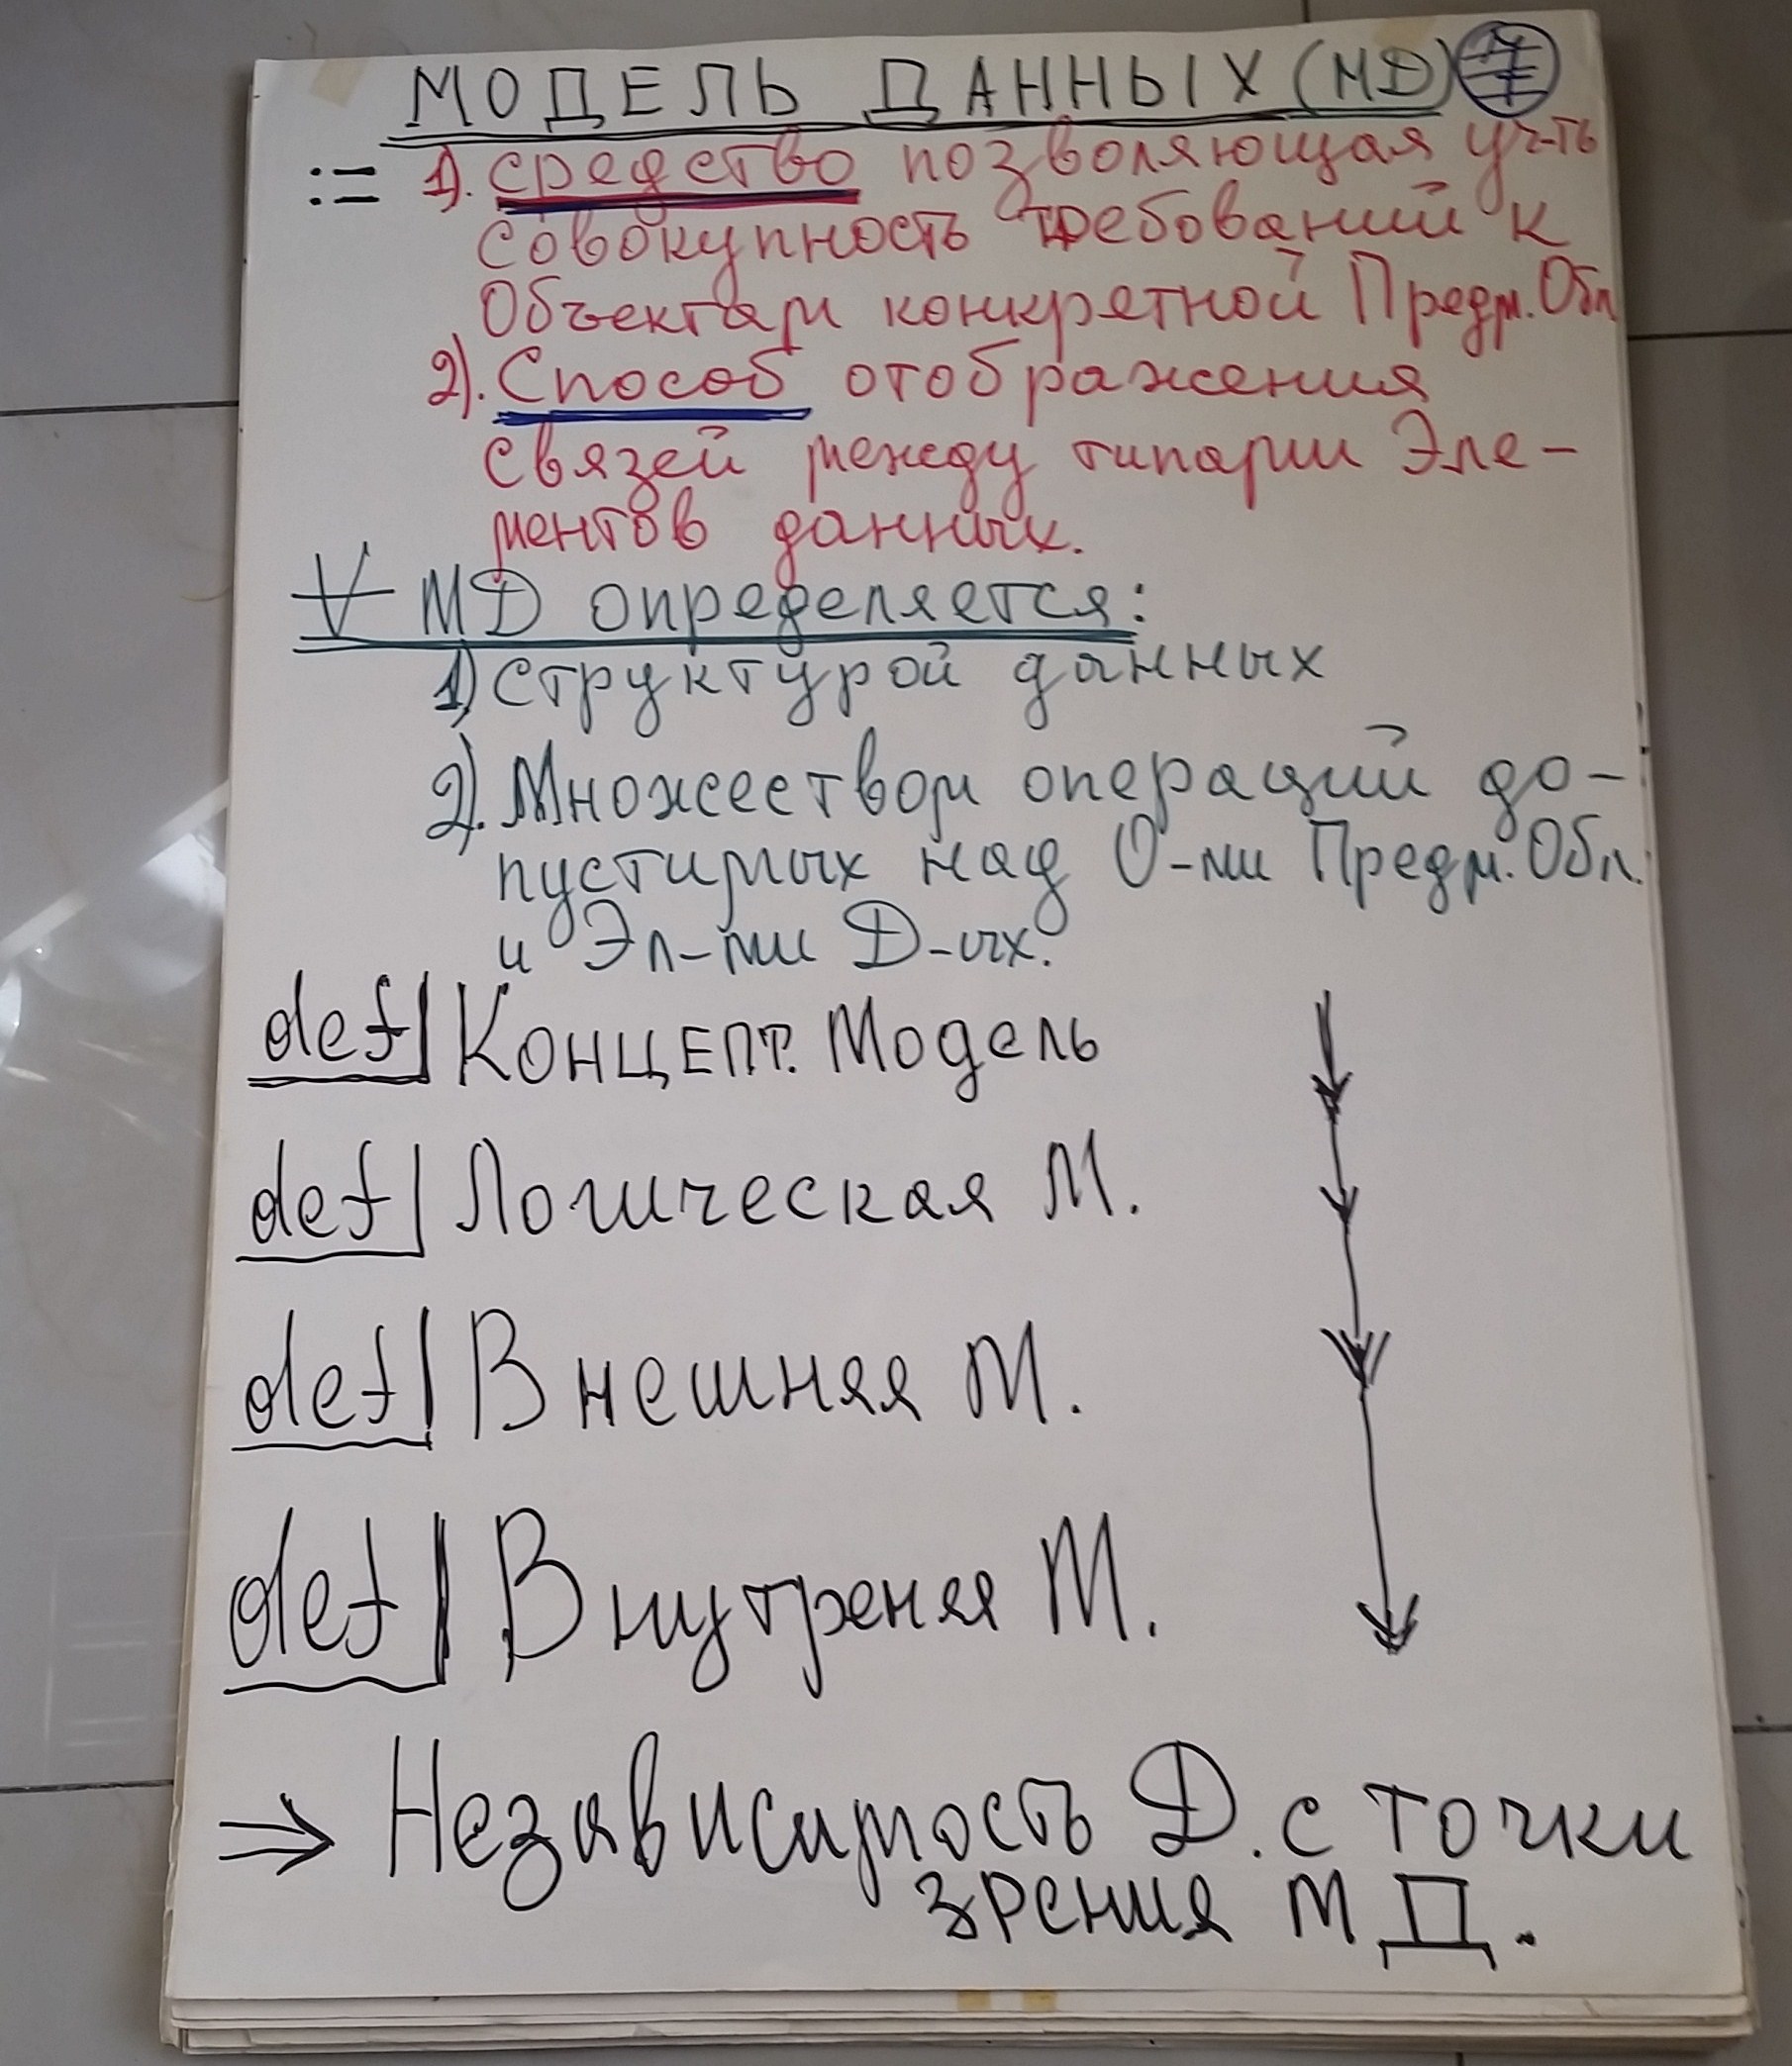 МОДЕЛЬ ДАННЫХ (МД)
:= 1). средство позволяющая уч-ть
совокупность требований к
Объектам конкретной Предм. Обл
2). Способ отображения
связей между типами Эле-
ментов данных.
∀ МД определяется:
1) структурой данных
2). Множеством операций до-
пустимых над О-ми Предм. Обл.
и Эл-ми Д-ых.
def| Концепт. Модель
def| Логическая М.
def| Внешняя М.
def| Внутреняя М.
⇒ Независимость Д. с точки
зрения МД.